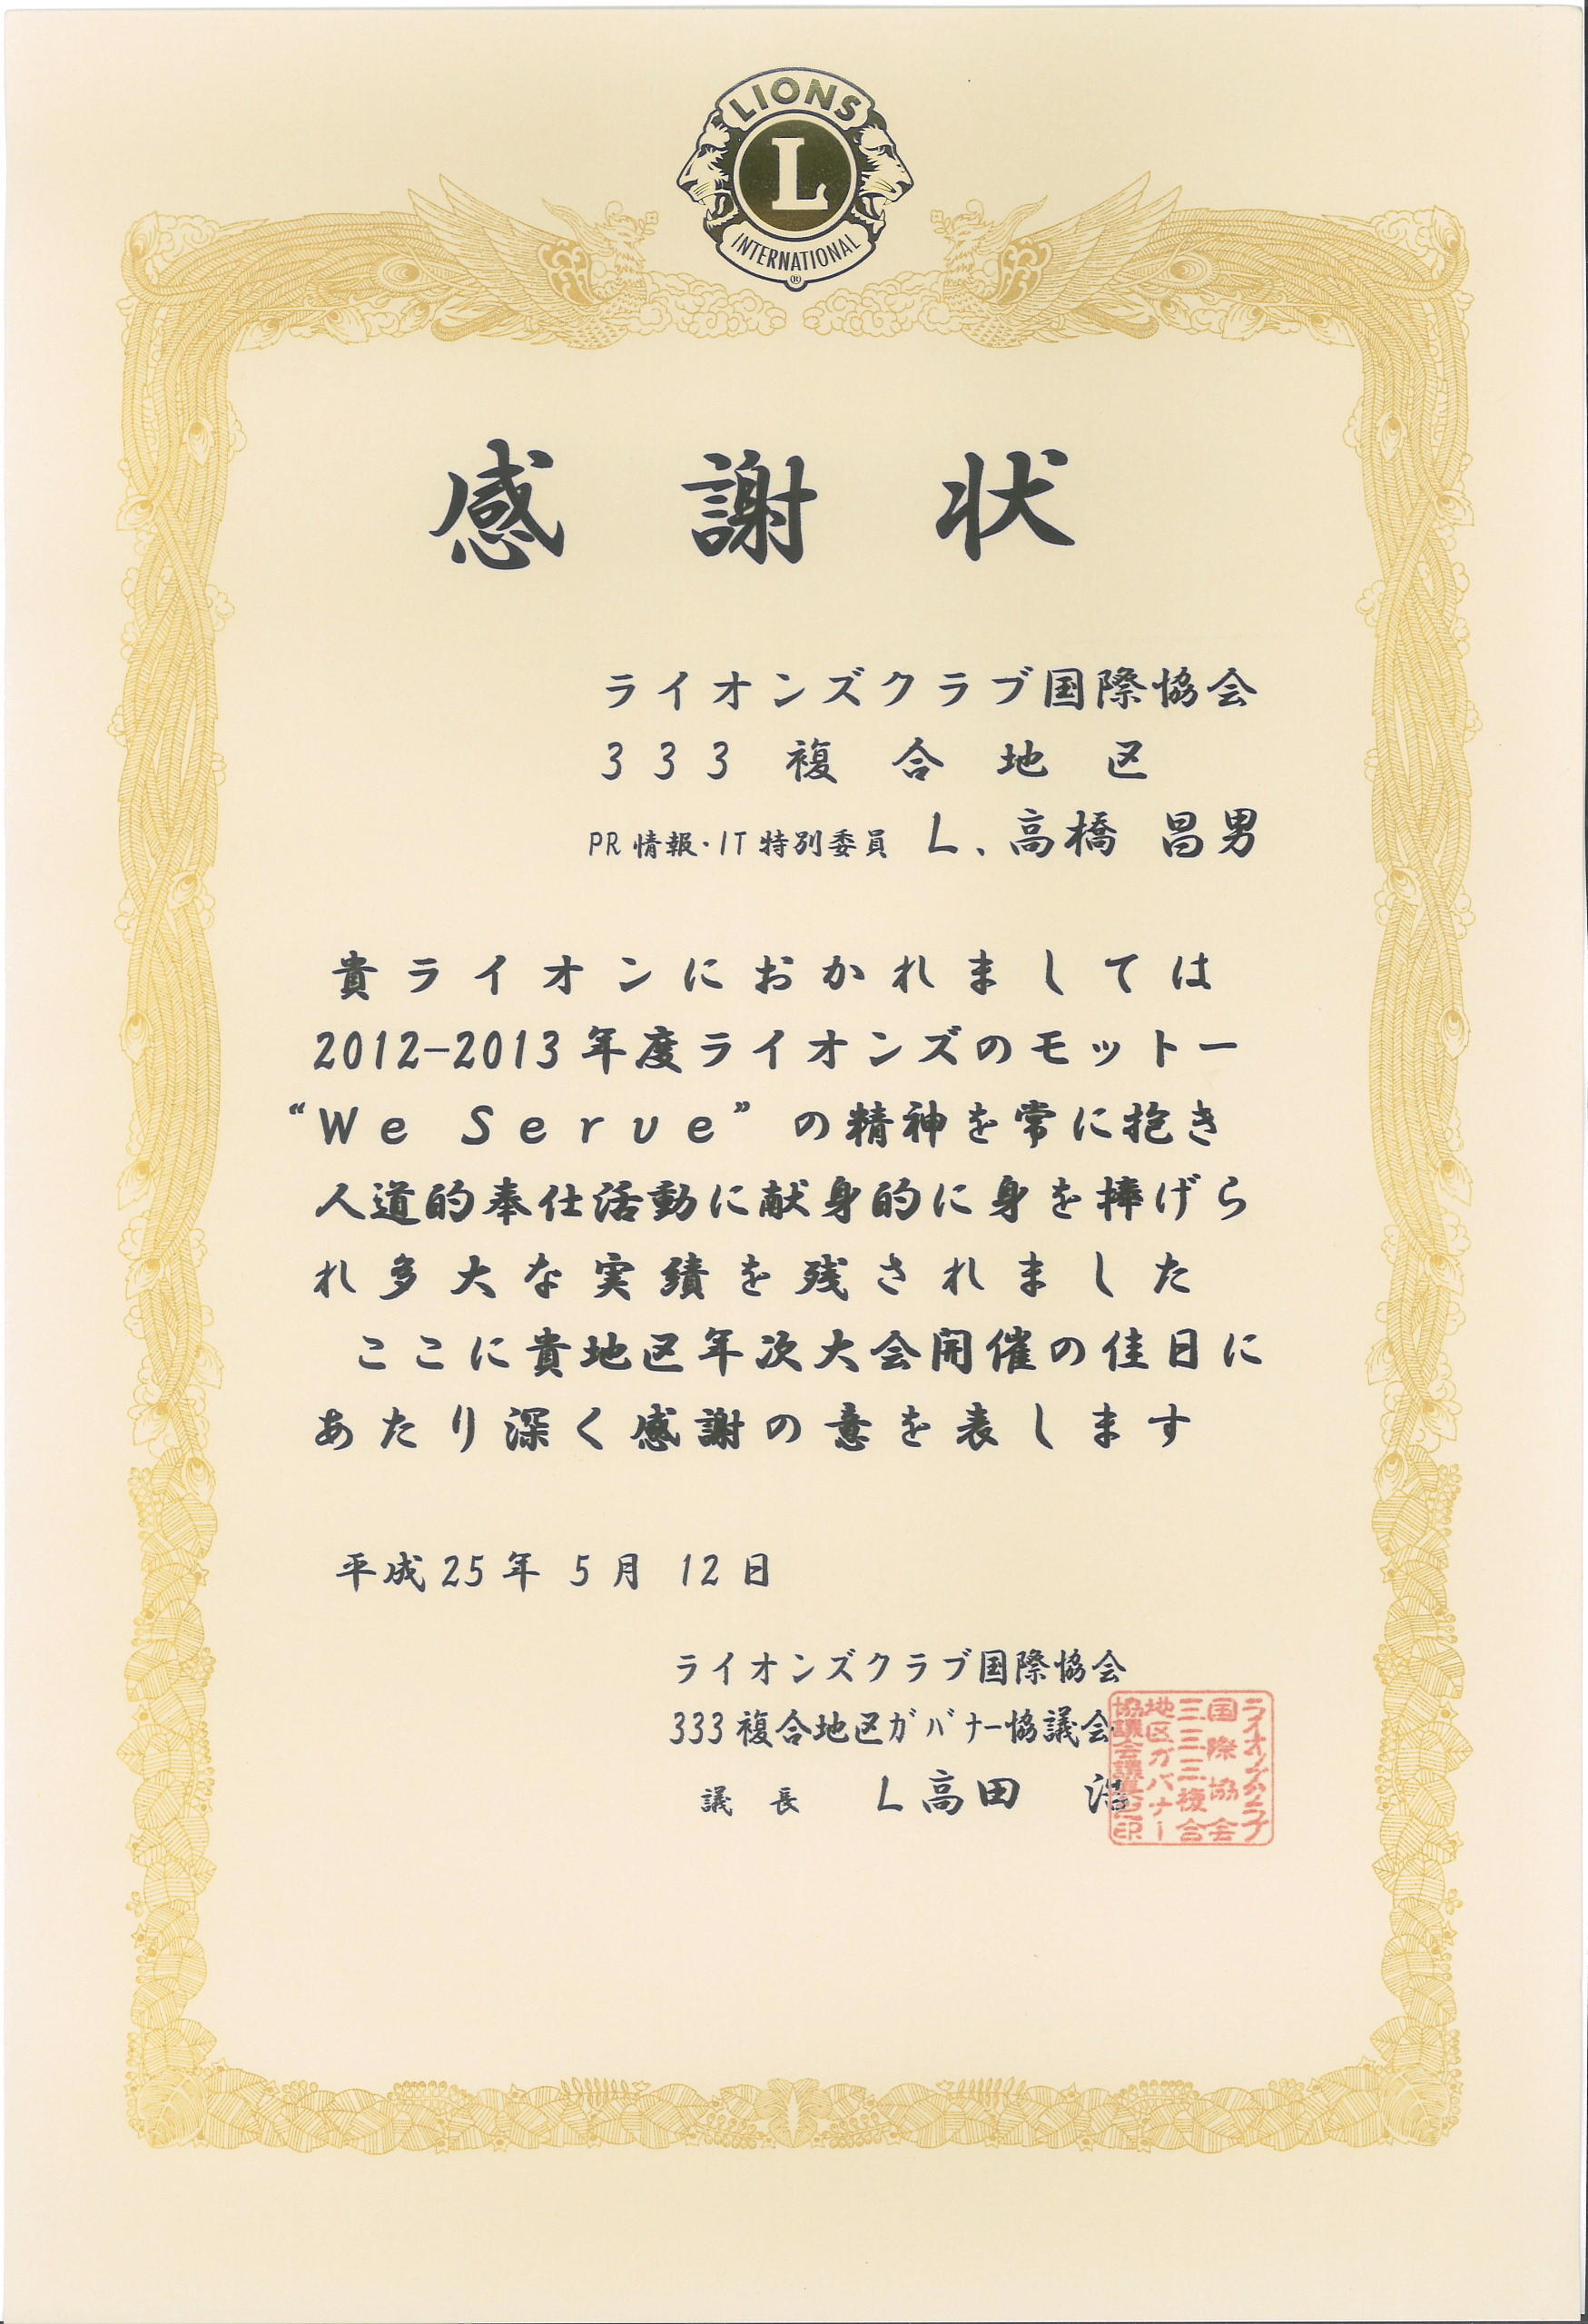 LIONS
L
INTERNATIONAL
®
感謝状
ライオンズクラブ国際協会
333複合地区
PR情報・IT特別委員 L、高橋 昌男
貴ライオンにおかれましては
2012-2013年度ライオンズのモットー
“We Serve”の精神を常に抱き
人道的奉仕活動に献身的に身を捧げら
れ多大な実績を残されました
ここに貴地区年次大会開催の佳日に
あたり深く感謝の意を表します
平成25年 5月 12日
ライオンズクラブ国際協会
333複合地区ガバナー協議会
議長 L高田
ライオンズクラブ
国際協会
三三三複合
地区ガバナー
協議会議長之印